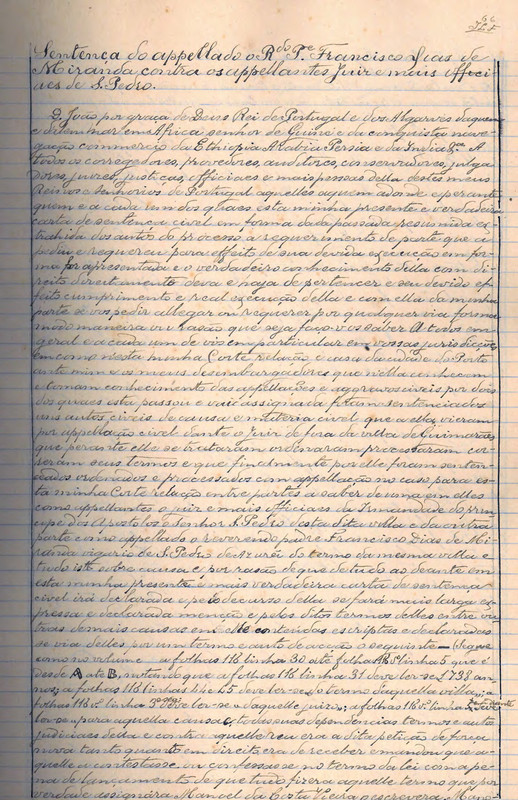 Sentença do appellado o R.do P.e Francisco Dias de
Miranda contra os appellantes Juiz e mais offici
aes de S. Pedro.
D. João por graça de Deus Rei de Portugal e dos Algarves daquem
e dalem mar em Africa senhor de Guiné e da conquista nave-
gação commercio da Ethiopia Arabia Persia e da India &a. A
todos os corregedores, provedores, auditores, conservadores, julga
dores, juizes, justiças, officiaes e mais pessoas della destes meus
Reinos e senhorios de Portugal aquelles a quem aonde e perante
quem e a cada um dos quaes esta minha presente e verdadeira
carta de sentença civel em forma dada passada resumida ex-
trahida dos autos do processo a requerimento de parte que a
pediu e requereu para effeito de sua devida execução em for-
ma for apresentada e o verdadeiro conhecimento della com di-
reito directamente deva e haja de pertencer e seu devido ef-
feito cumprimento e real execução della e com ella da minha
parte se vos pedir allegar ou requerer por qualquer via forma
modo maneira ou rasão que seja faço-vos saber A todos em
geral e a cada um de vós em particular em vossas jurisdicções
em como nesta minha Corte relação e casa da cidade do Porto
ante mim e os meus desembargadores que n'ella conhecem
e tomam conhecimento das appellações e aggravos civeis por dois
dos quaes esta passou e vai assignada foram sentenciados
uns autos civeis de causa e materia civel que a ella vieram
por appellação civel dante o Juiz de fora da villa de Guimarães
que perante elle se trataram ordenaram processaram cor-
reram seus termos e que finalmente por elle foram senten-
ciados ordenados e processados com appellação no caso para es-
ta minha Corte relação entre partes a saber de uma em elles
como appellantes o juiz e mais officiaes da Irmandade do prin-
cipe dos Apostolos e Senhor S. Pedro desta dita villa e da outra
parte como appellado o reverendo padre Francisco Dias de Mi-
randa vigario de S. Pedro de Azurei do termo da mesma villa e
tudo isto sobre causa e por rasão de que de tudo ao deante em
esta minha presente e mais verdadeira carta de sentença
civel irá declarada e pelo decurso della se fará mais larga ex-
pressa e declarada menção e pelos ditos termos delles entre ou-
tras demais causas em elle contendas escriptas e declaradas
se via delles por um termo e auto de acção o seguinte — Segue
como no volume a folhas 116 linha 30 até folha 118 linha 5 que é
desde A até B, notando que a folhas 116 linha 31 deve ler-se 1738 an-
nos; a folhas 116 linhas 44 e 45 deve ler-se do termo daquella villa; a
folhas 118 v. linha 3 deve ler-se daquelle juizo; a folhas 118 v. linha
ler-se para aquella causa e todas suas dependencias termos e auto
judiciaes della e contra aquelle reu era a dita petição de força
nova tanto quanto em direito era de receber e mandou que a-
quelle a contestasse ou confessasse no termo da lei com a pe-
na de lançamento de que tudo fizera aquelle termo que por
verdade assignára Manoel da Costa Vieira o escrevera Mano-